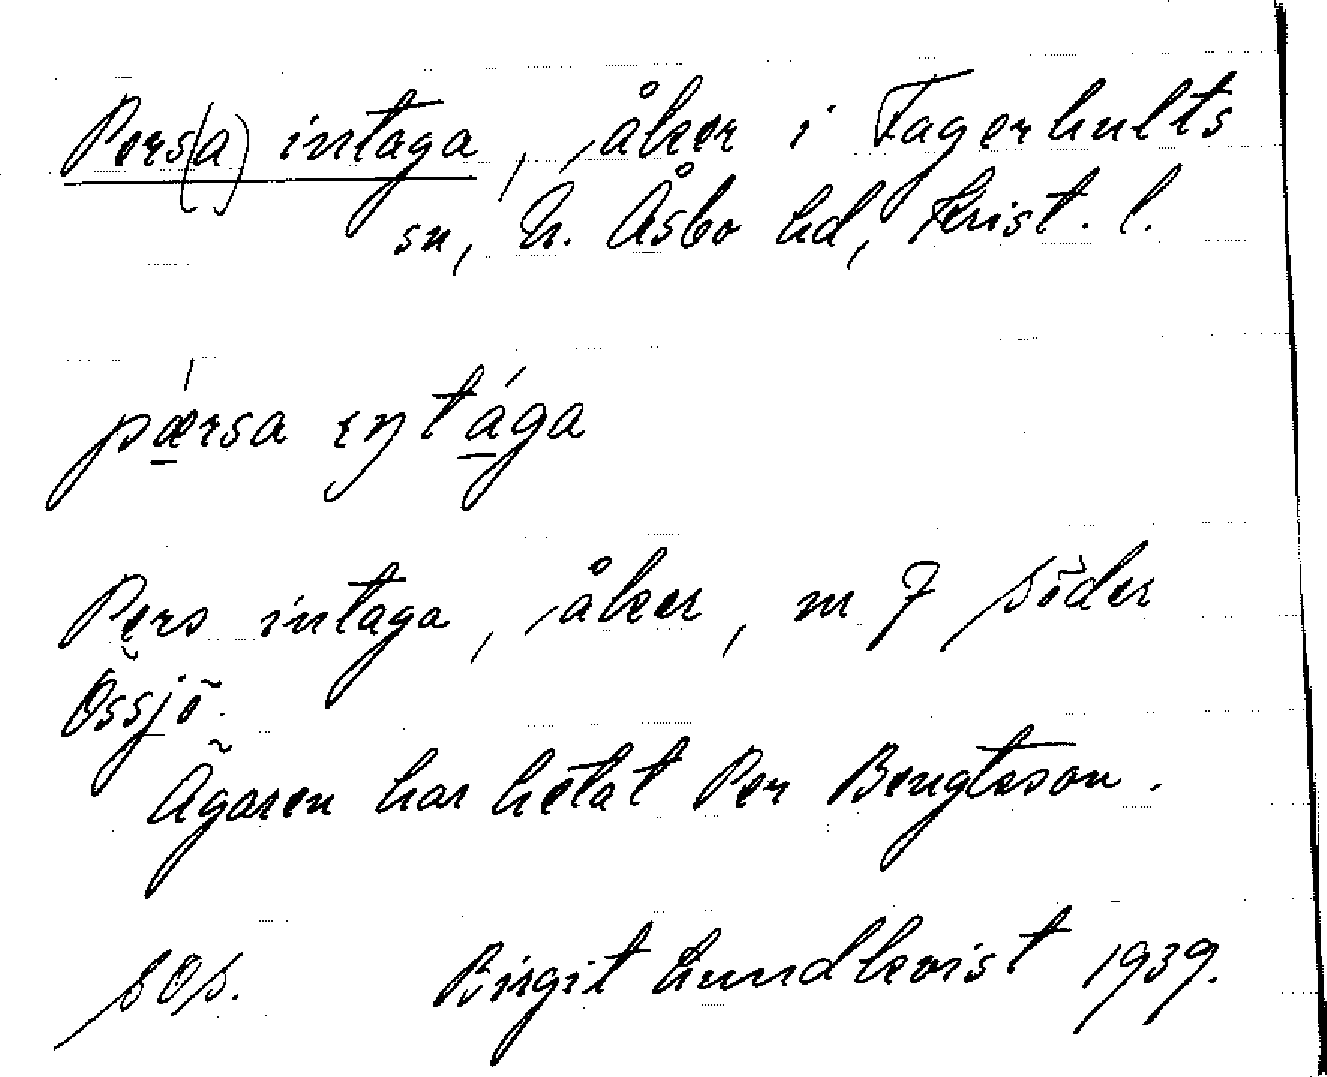 Pers(a) intaga, åker i Fagerhults
sn, N. Åsbo hd, Krist. l.
pærsa ɪntága
Pers intaga, åker, nr 7 Söder
Össjö.
Ägaren har hetat Per Bengtsson.
sOs. Birgit Lundkvist 1939.